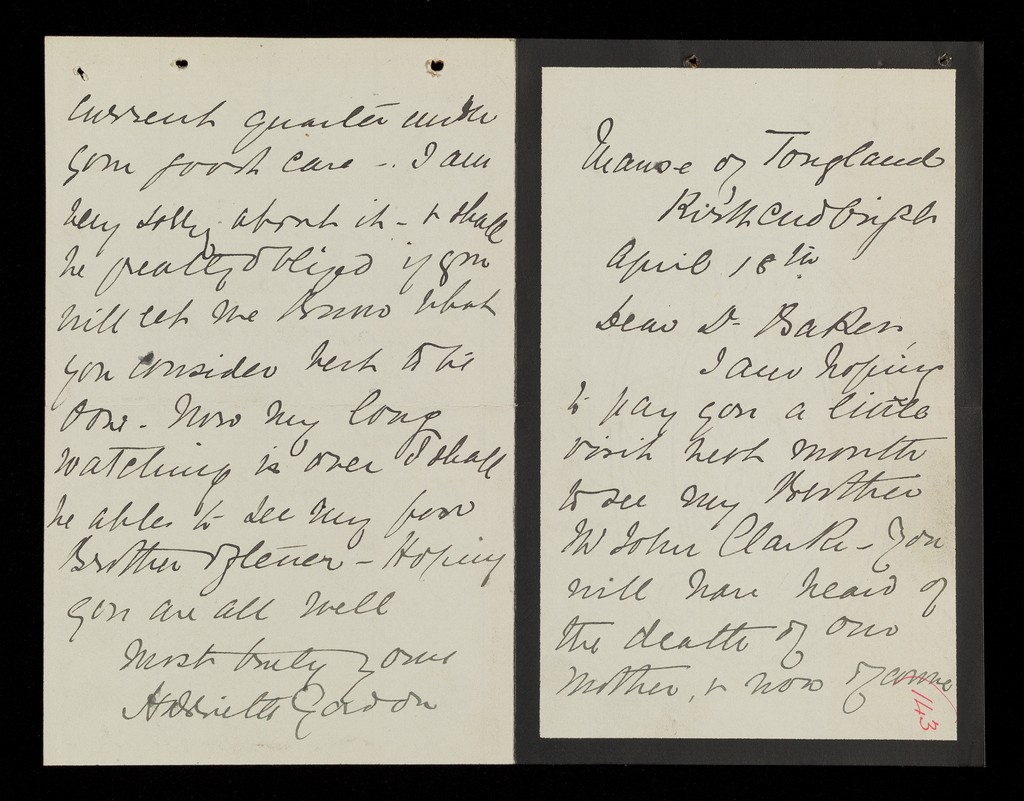 Manse of Tongland
Kirkcudbright
April 18th
Dear Dr. Baker,
I am hoping
to pay you a little
visit next month
to see my Brother
Mr John Clarke - You
will have heard of
the death of our
Mother, & now of
143
current quarter with
your good care -. I am
very sorry about it - & shall
be greatly obliged if you
will let me know what
you consider best to be
done - Now my long
watching is over I shall
be able to see my poor
Brother oftener - Hoping
you are all well
Most truly yours
Harriette Gordon